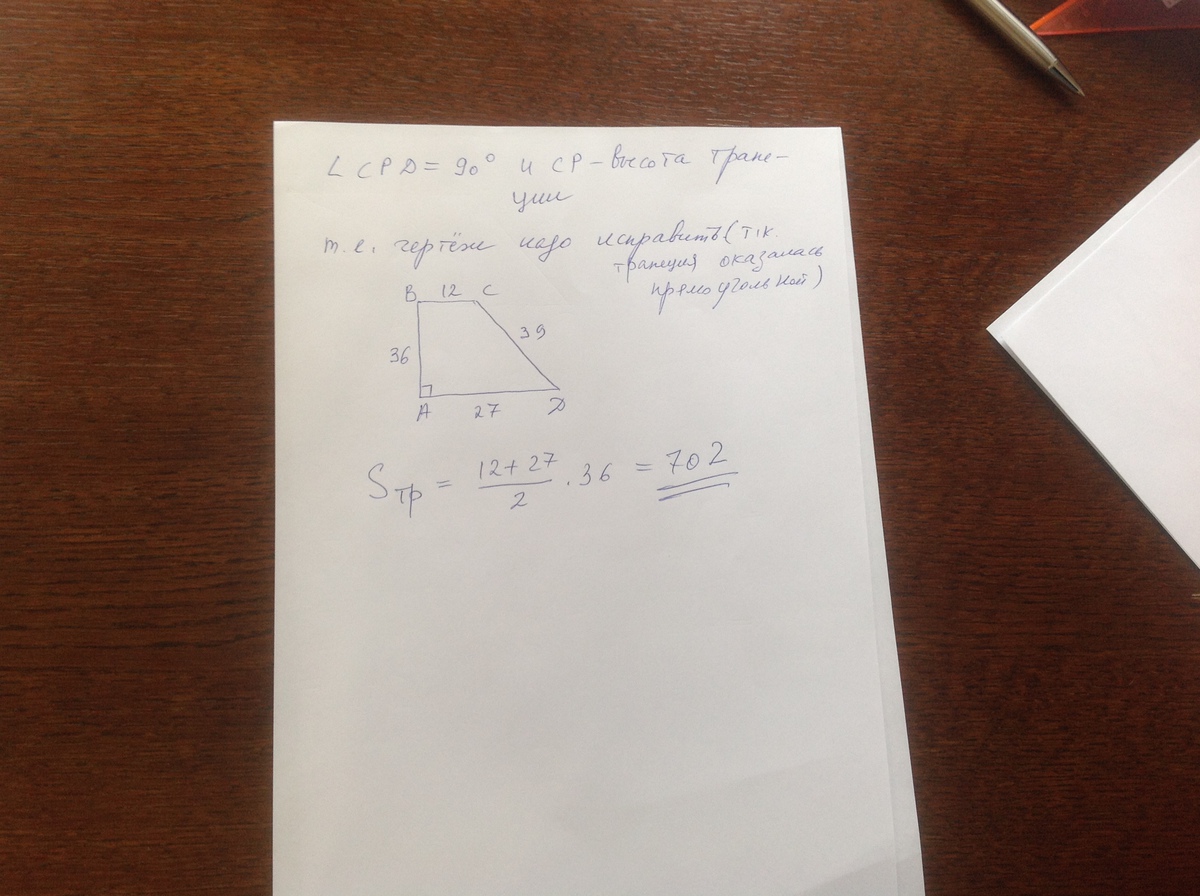 ∠ CPD = 90° и CP – высота трапе-
ции
т.е. чертёж надо исправить (т.к.
трапеция оказалась
прямоугольной)
B 12 C
39
36
A 27 D
Sтр = (12+27)/2 · 36 = 702